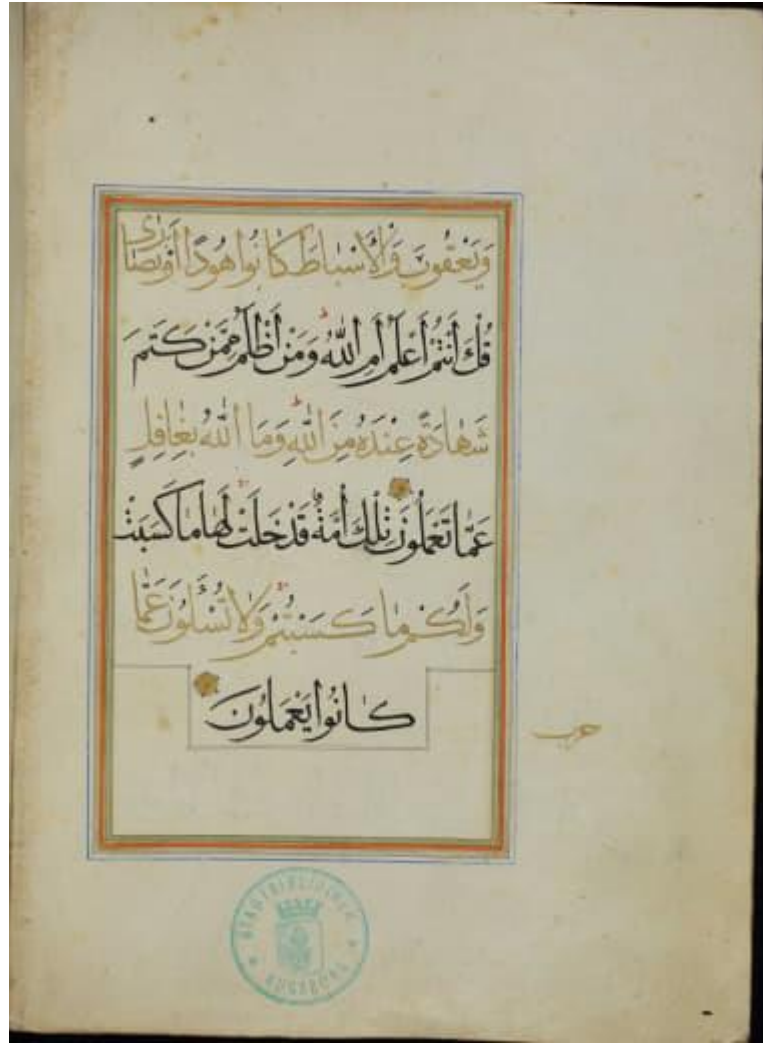 وَيَعْقُوبَ وَالْأَسْبَاطَ كَانُوا هُودًا أَوْ نَصَارَى
قُلْ أَأَنْتُمْ أَعْلَمُ أَمِ اللَّهُ وَمَنْ أَظْلَمُ مِمَّنْ كَتَمَ
شَهَادَةً عِنْدَهُ مِنَ اللَّهِ وَمَا اللَّهُ بِغَافِلٍ
عَمَّا تَعْمَلُونَ تِلْكَ أُمَّةٌ قَدْ خَلَتْ لَهَا مَا كَسَبَتْ
وَلَكُمْ مَا كَسَبْتُمْ وَلَا تُسْأَلُونَ عَمَّا
كَانُوا يَعْمَلُونَ
حزب
STADTBIBLIOTHEK
AUGSBURG